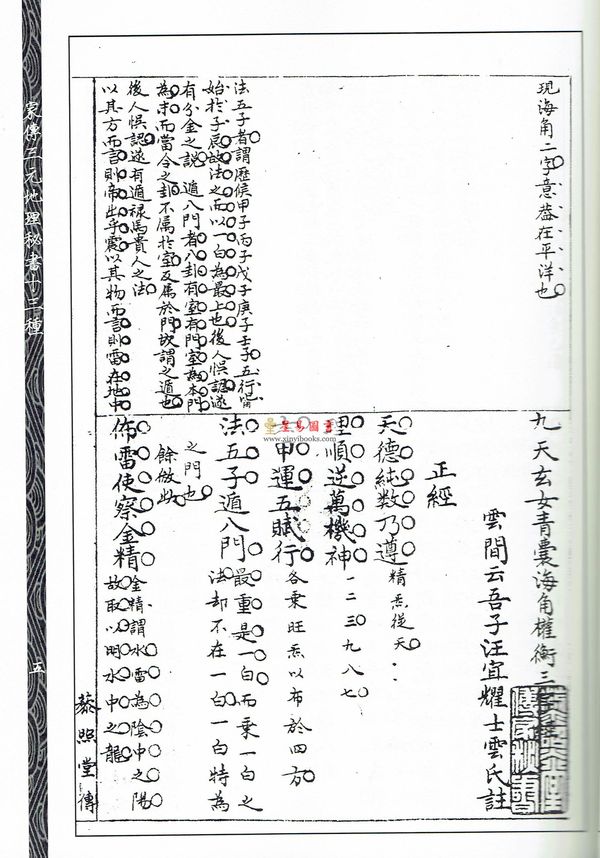 現海角二字意蓋在平洋也
法五子者謂歷侯甲子丙子戊子庚子壬子五行皆
始於子辰故法之而以一白為最上也後人悞認遂
有分金之說 遁八門者八卦有室有門室為本門
為末而當令之卦不属於室反属於門故謂之遁也
後人悞認遂有遁禄馬貴人之法
以其方而言則帝出乎震以其物而言則雷在地中
九天玄女青囊海角權衡三
雲間云吾子汪宜耀士雲氏註
正經
天德純数乃遵 精炁從天
理順逆萬機神 一二三九八七
甲運五賦行 各乗旺炁以布於四方
法五子遁八門 最重是一白而乗一白之
法却不在一白一白特為
之門也
餘倣此
佈雷使察金精 金精謂水雷為陰中之陽
故取以明水中之龍
家傳三元地理秘書十二種
五
蔡照堂傳
星易圖書
www.xinyibooks.com